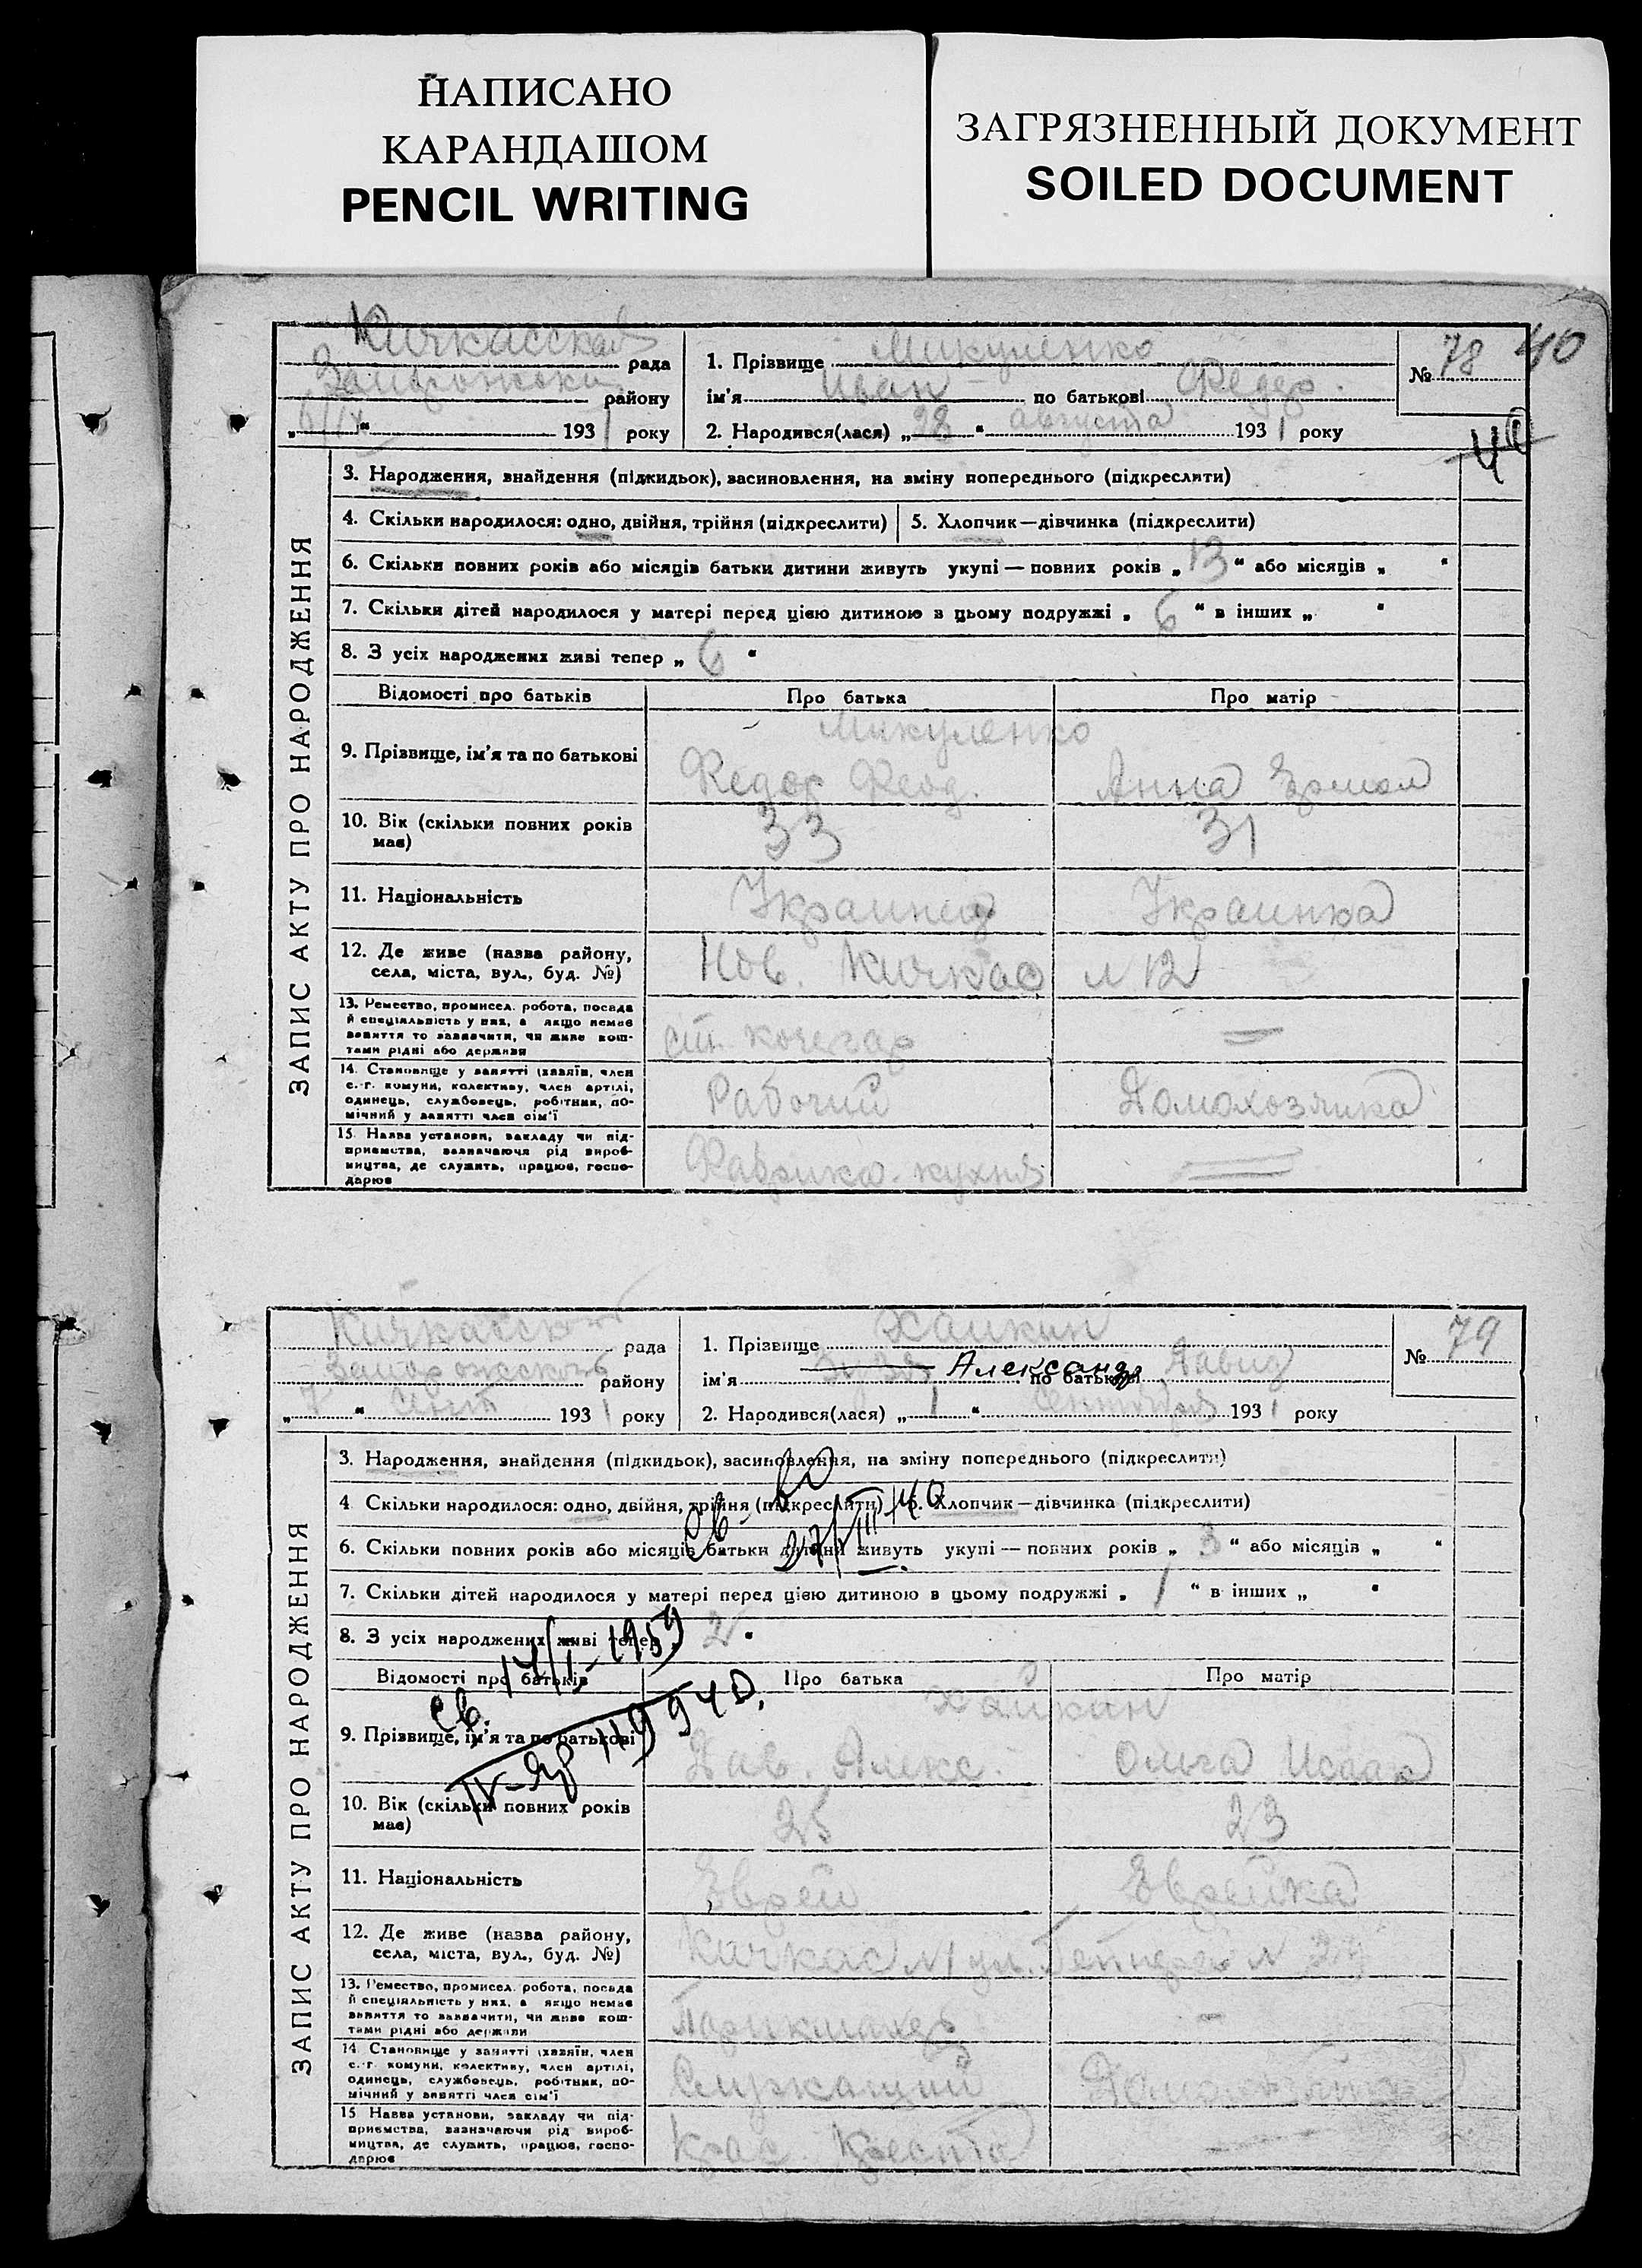 НАПИСАНО
КАРАНДАШОМ
PENCIL WRITING
ЗАГРЯЗНЕННЫЙ ДОКУМЕНТ
SOILED DOCUMENT
Кичкасская рада
района Запорожский району
„6/IX“ 1931 року
1. Прізвище Микуленко
ім'я Иван по батькові Федор.
2. Народився(лася) „28“ августа 1931 року
№ 78
40
40
ЗАПИС АКТУ ПРО НАРОДЖЕННЯ
3. Народження, знайдення (підкидьок), засиновлення, на зміну попереднього (підкреслити)
4. Скільки народилося: одно, двійня, трійня (підкреслити) 5. Хлопчик—дівчинка (підкреслити)
6. Скільки повних років або місяців батьки дитини живуть укупі — повних років „13“ або місяців „ “
7. Скільки дітей народилося у матері перед цією дитиною в цьому подружжі „6“ в інших „ “
8. З усіх народжених живі тепер „6“
Відомості про батьків Про батька Про матір
Микуленко
9. Прізвище, ім'я та по батькові Федор Феод. Анна Ермол
10. Вік (скільки повних років має) 33 31
11. Національність Украинец Украинка
12. Де живе (назва району, села, міста, вул., буд. №) Нов. Кичкас N 12
13. Ремество, промисел, робота, посада
й спеціяльність у них, а якщо немає
заняття то зазначити, чи живе кош-
тами рідні або держави
ст. кочегар
14. Становище у занятті (хазяїн, член
с.-г. комуни, колективу, член артілі,
одинець, службовець, робітник, по-
мічний у занятті член сім'ї
Рабочий Домохозяйка
15. Назва установи, закладу чи під-
приємства, зазначаючи рід вироб-
ництва, де служить, працює, госпо-
дарює
Фабрика-кухня
Кичкасская рада
Запорожского району
„7“ Сент 1931 року
1. Прізвище Хайкин
ім'я Александр по батькові Давид
2. Народився(лася) „1“ Сентября 1931 року
№ 79
ЗАПИС АКТУ ПРО НАРОДЖЕННЯ
3. Народження, знайдення (підкидьок), засиновлення, на зміну попереднього (підкреслити)
4 Скільки народилося: одно, двійня, трійня (підкреслити) 5. Хлопчик—дівчинка (підкреслити)
6. Скільки повних років або місяців батьки дитини живуть укупі — повних років „3“ або місяців „ “
7. Скільки дітей народилося у матері перед цією дитиною в цьому подружжі „1“ в інших „ “
8. З усіх народжених живі тепер „2“
Св-во
27/III-40
Св. 14/I-1959
IV-ЯР 119940.
Відомості про батьків Про батька Про матір
Хайкин
9. Прізвище, ім'я та по батькові Дав. Алекс Ольга Исаак
10. Вік (скільки повних років має) 25 23
11. Національність Еврей Еврейка
12. Де живе (назва району, села, міста, вул., буд. №) Кичкас N1 ул.
13. Ремество, промисел, робота, посада
й спеціяльність у них, а якщо немає
заняття то зазначити, чи живе кош-
тами рідні або держави
Парикмахер –
14. Становище у занятті (хазяїн, член
с.-г. комуни, колективу, член артілі,
одинець, службовець, робітник, по-
мічний у занятті член сім'ї
Служащий Домохозяйка
15. Назва установи, закладу чи під-
приємства, зазначаючи рід вироб-
ництва, де служить, працює, госпо-
дарює
Крас Креста